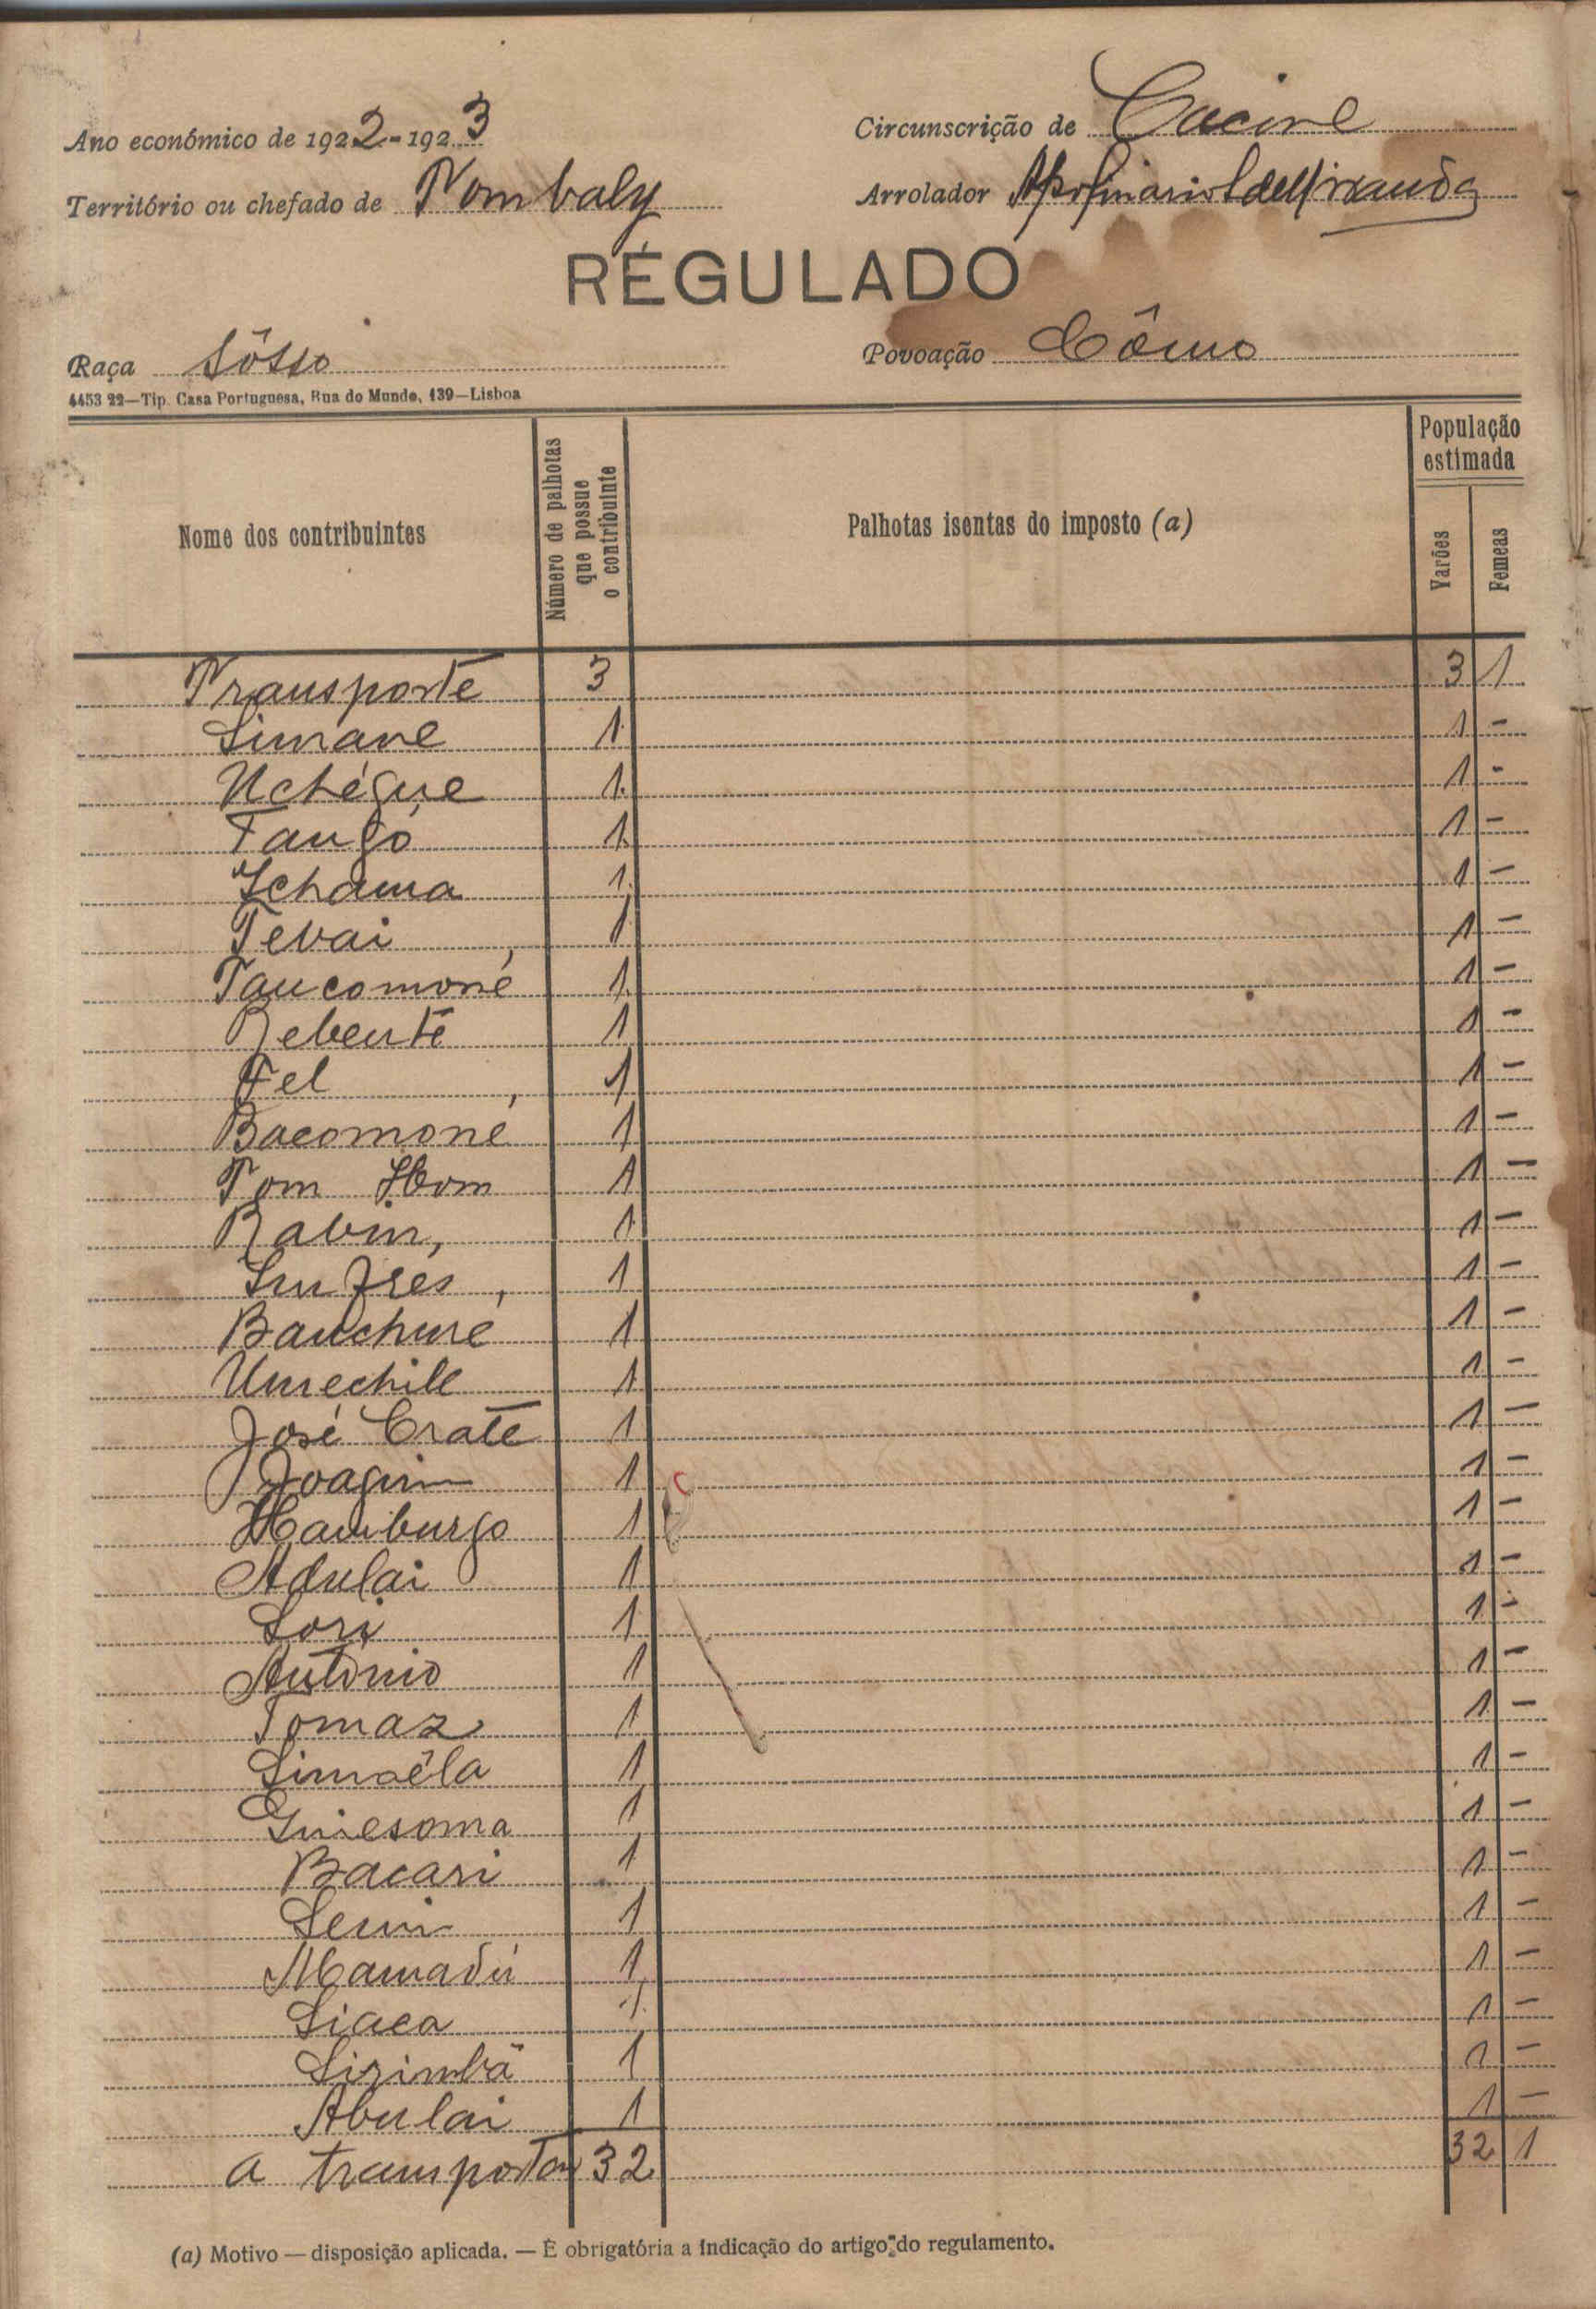 Ano económico de 1922-1923
Circunscrição de Cacine
Território ou chefado de Tombaly
Arrolador Apolinario
RÉGULADO
Raça Sôsso
Povoação Cômo
4453 22—Tip. Casa Portuguesa, Rua do Mundo, 139—Lisboa
Nome dos contribuintes
Número de palhotas que possue o contribuinte
Palhotas isentas do imposto (a)
População estimada
Varões
Femeas
Transporte 3 3 1
Simane 1 1 -
Uchégue 1 1 -
Tangó 1 1 -
Ichama 1 1 -
Tebai 1 1 -
Taucomoné 1 1 -
Rebente 1 1 -
Fel 1 1 -
Bacomoné 1 1 -
Tom Hom 1 1 -
Rabin 1 1 -
1 1 -
Banchuré 1 1 -
Umechile 1 1 -
José Crate 1 1 -
Joaquim 1 1 -
Hamburgo 1 1 -
Adulai 1 1 -
Sori 1 1 -
António 1 1 -
Tomaz 1 1 -
Simoêla 1 1 -
Guiesoma 1 1 -
Bacari 1 1 -
1 1 -
Mamadú 1 1 -
Siaca 1 1 -
Sirimbã 1 1 -
Abulai 1 1 -
a transportar 32 32 1
(a) Motivo — disposição aplicada. — É obrigatória a indicação do artigo do regulamento.